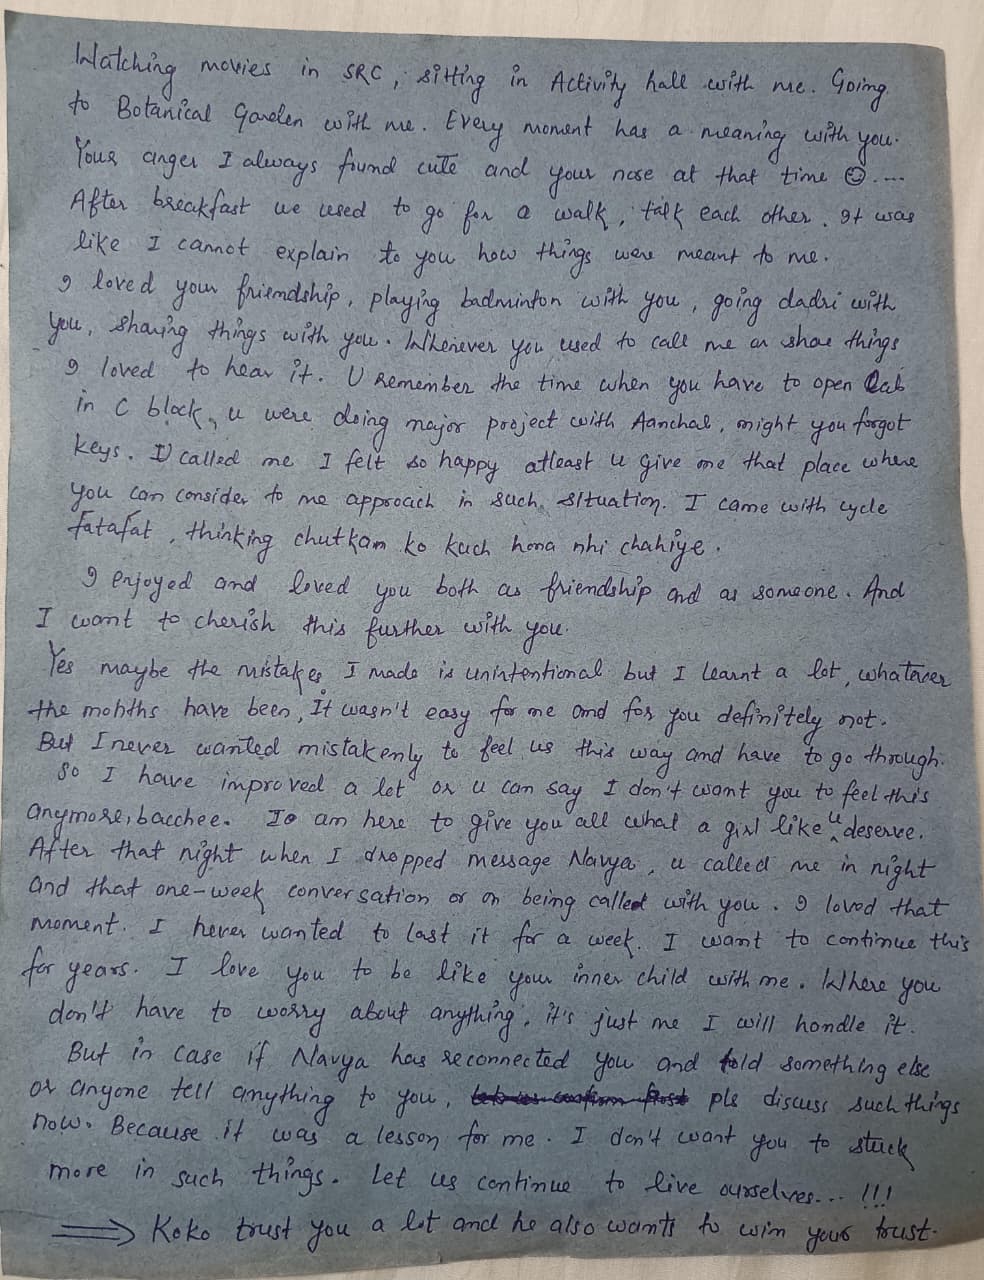 Watching movies in SRC, sitting in Activity hall with me. Going
to Botanical Garden with me. Every moment has a meaning with you.
Your anger I always found cute and your nose at that time ☺....
After breakfast we used to go for a walk, talk each other. It was
like I cannot explain to you how things were meant to me.
I loved your friendship, playing badminton with you, going dadri with
you, sharing things with you. Whenever you used to call me or share things
I loved to hear it. U Remember the time when you have to open Lab
in C block, u were doing major project with Aanchal, might you forgot
keys. U called me I felt so happy atleast u give me that place where
you can consider to me approach in such situation. I came with cycle
fatafat, thinking chutkam ko kuch hona nhi chahiye.
I enjoyed and loved you both as friendship and as someone. And
I want to cherish this further with you.
Yes maybe the mistakes I made is unintentional but I learnt a lot, whatever
the months have been, It wasn't easy for me and for you definitely not.
But I never wanted mistakenly to feel us this way and have to go through.
So I have improved a lot or u can say I don't want you to feel this
anymore, bacchee. I am here to give you all what a girl like u deserve.
After that night when I dropped message Navya, u called me in night
and that one-week conversation or on being called with you. I loved that
moment. I never wanted to last it for a week. I want to continue this
for years. I love you to be like your inner child with me. Where you
don't have to worry about anything, it's just me I will handle it.
But in case if Navya has reconnected you and told something else
or anyone tell anything to you, pls discuss such things
now. Because it was a lesson for me. I don't want you to stuck
more in such things. Let us continue to live ourselves... !!!
⟹ Koko trust you a lot and he also wants to win your trust.